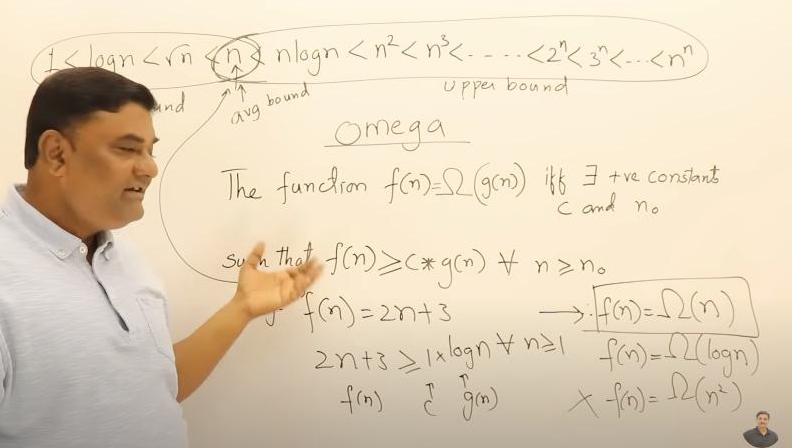 1 < logn < √n < n < nlogn < n² < n³ < ----- < 2ⁿ < 3ⁿ < --- < nⁿ
avg bound
upper bound
Omega
The function f(n)=Ω(g(n)) iff ∃ +ve constants
c and n₀
such that f(n) ≥ c*g(n) ∀ n ≥ n₀
f(n) = 2n+3
→ ∴ f(n)=Ω(n)
2n+3 ≥ 1×logn ∀ n≥1
f(n)=Ω(logn)
f(n) ↑c ↑g(n)
✗ f(n)=Ω(n²)